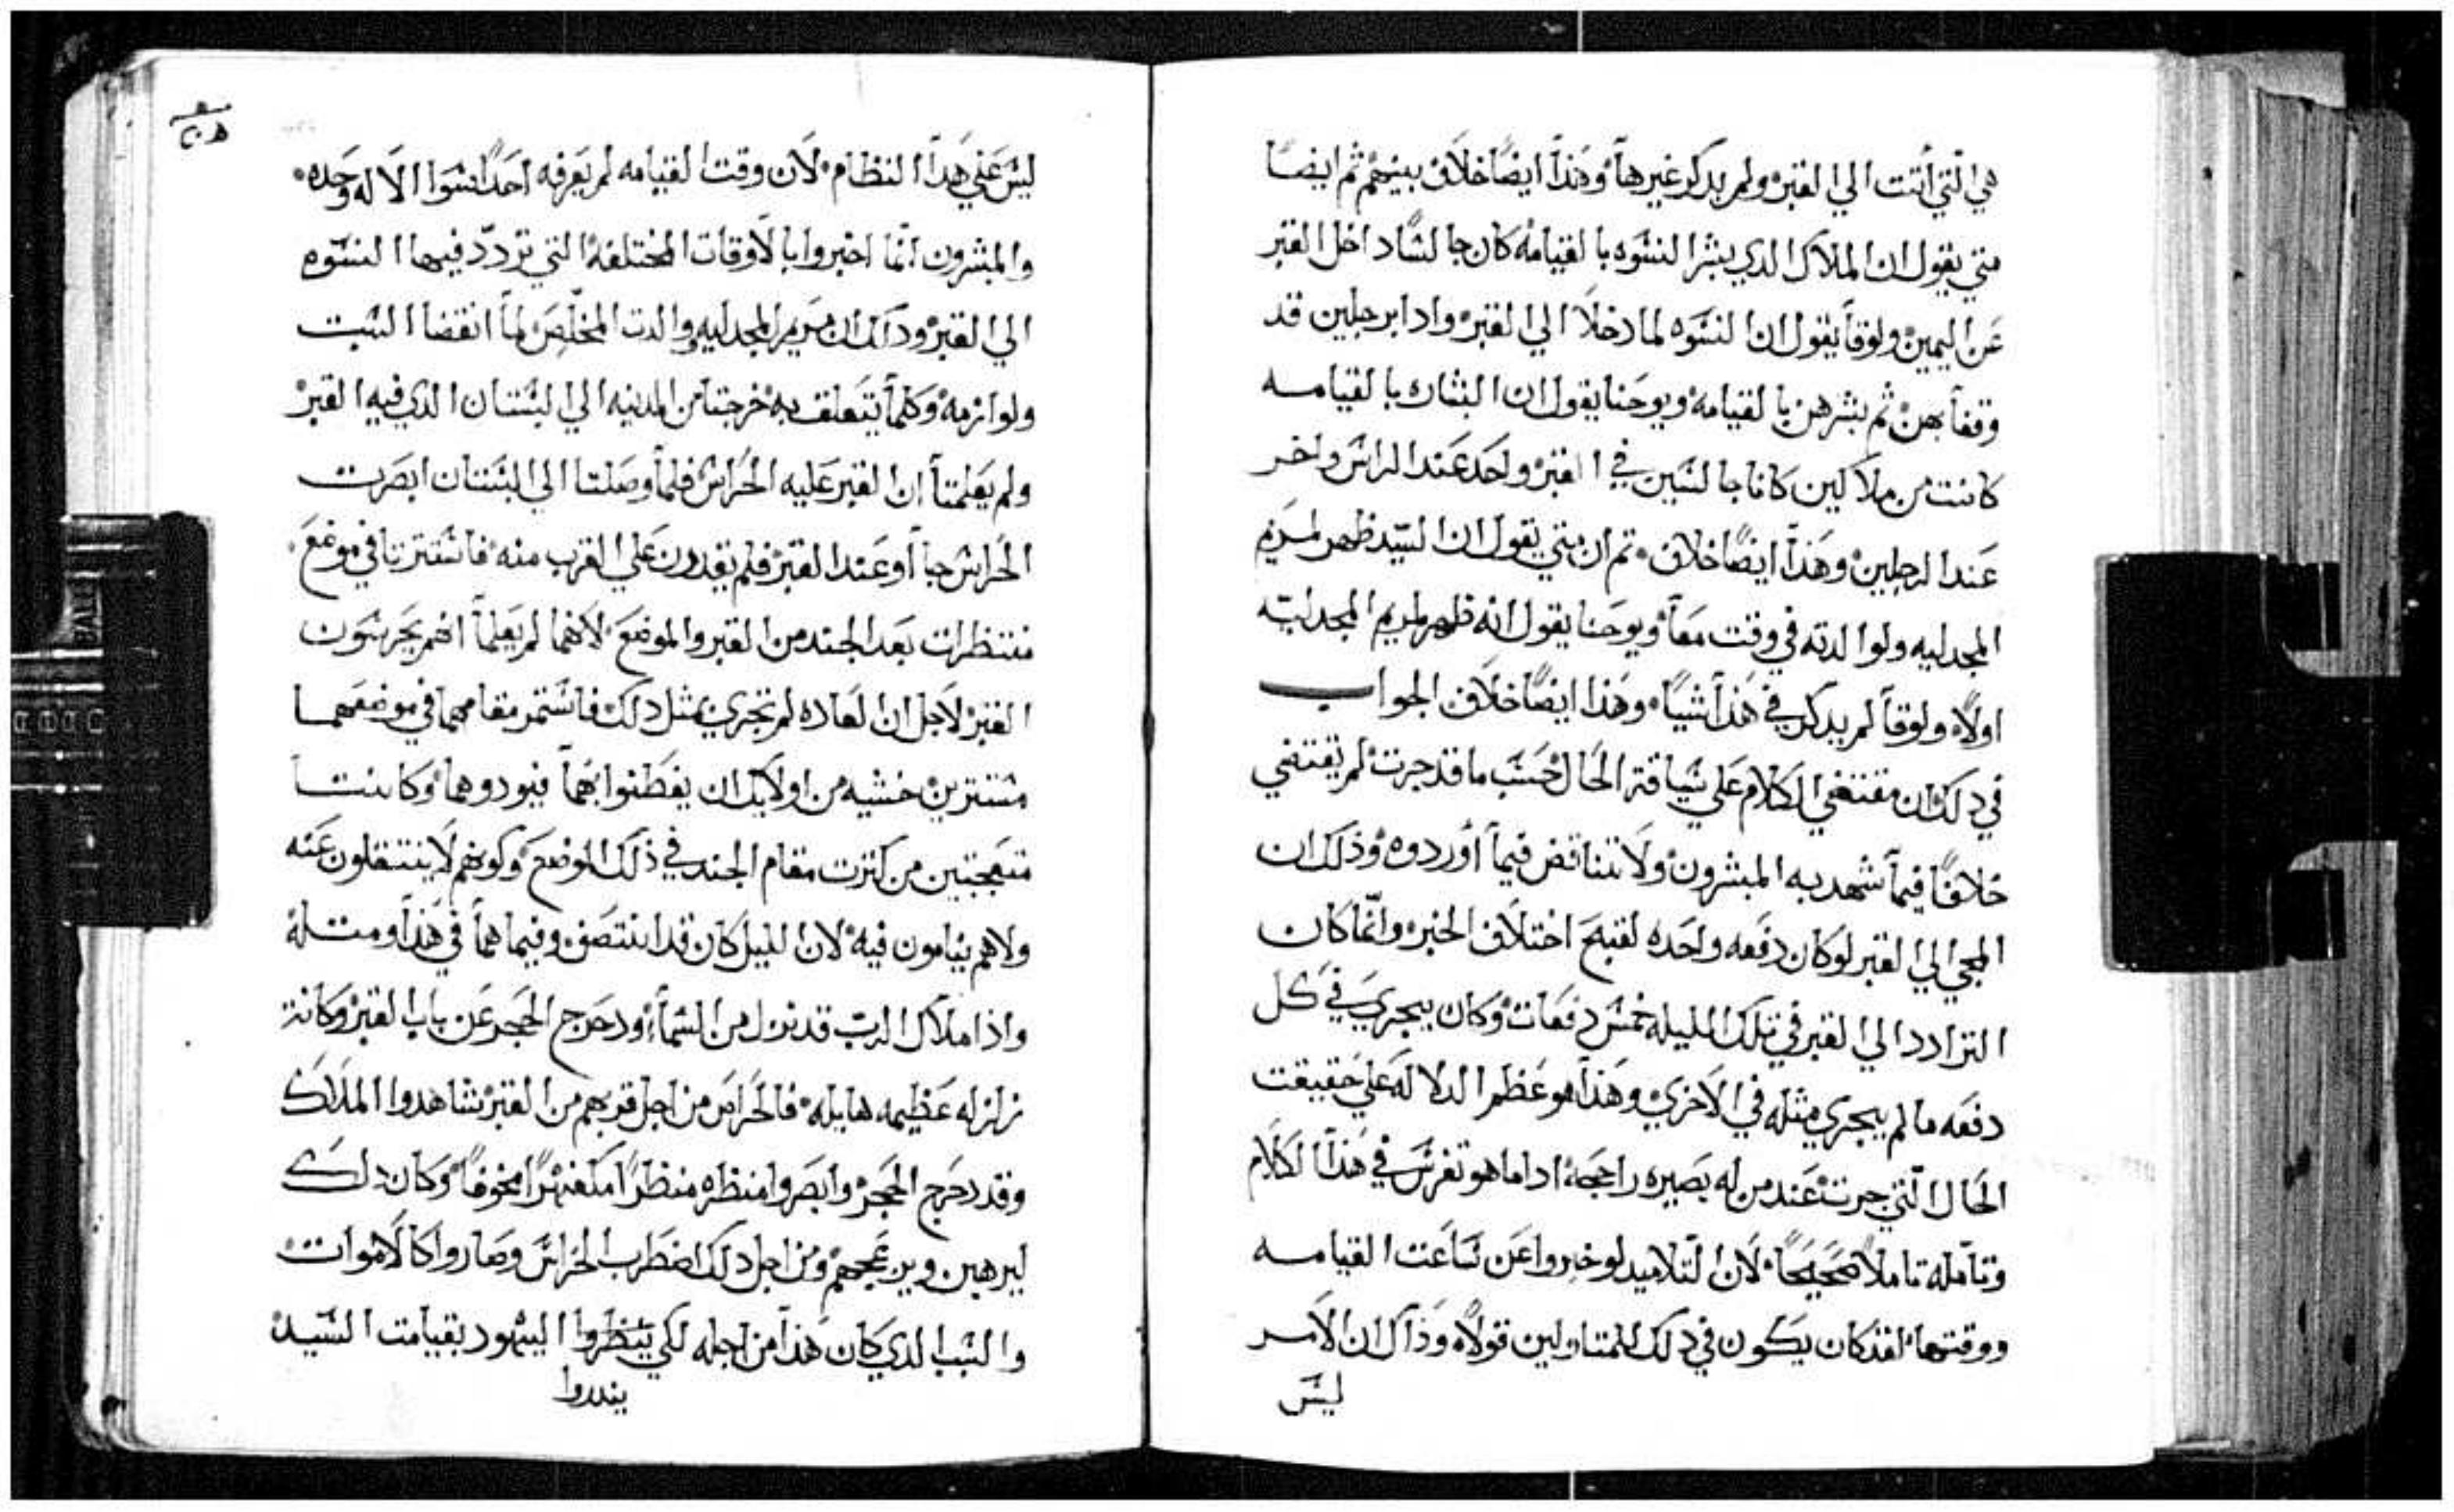 هي التي أتت الي القبر ولم يدكر غيرها وهذا ايضًا خلاف بينهم ثم ايضًا
متي يقول ان الملاك الدي بشر النسوه بالقيامه كان جالسًا داخل القبر
عن اليمين ولوقا يقول ان النسوه لما دخلا الي القبر وادا برجلين قد
وقفا بهن ثم بشرهن بالقيامه ويوحنا يقول ان البشاره بالقيامه
كانت من ملاكين كانا جالسين في القبر واحد عند الراس واخر
عند الرجلين وهذا ايضًا خلاف ثم ان متي يقول ان السيد ظهر لمريم
المجدليه ولوالدته في وقت معًا ويوحنا يقول انه ظهر لمريم المجدليه
اولًا ولوقا لم يدكر في هذا شيًا وهذا ايضًا خلاف الجواب
في دلك ان مقتضي الكلام علي سياقة الحال حسب ما قد جرت لم يقتضي
خلافًا فيما شهد به المبشرون ولا تناقض فيما أوردوه وذلك ان
المجي الي القبر لو كان دفعه واحده لقبح اختلاف الخبر وانما كان
الترادد الي القبر في تلك الليله خمس دفعات وكان يجري في كل
دفعه ما لم يجري مثله في الاخري وهذا هو عظم الدلاله علي حقيقت
الحال التي جرت عند من له بصيره راجحه ادا ما هو تفرس في هذا الكلام
وتأمله تاملًا صحيحًا لان التلاميد لو خبروا عن ساعت القيامه
ووقتها لقد كان يكون في دلك للمتاولين قولًا وذاك ان الامر
ليس
٢٠٥
ليس علي هدا النظام لان وقت القيامه لم يعرفه احدًا سوا الاله وحده
والمبشرون انما اخبروا بالاوقات المختلفة التي تردد فيها النسوه
الي القبر ودلك ان مريم المجدليه والدت المخلص لما انقضا السبت
ولوازمه وكلما يتعلق به خرجتا من المدينه الي البستان الدي فيه القبر
ولم يعلمتا ان القبر عليه الحراس فلما وصلتا الي البستان ابصرت
الحراس جاأو عند القبر فلم يقدرون علي القرب منه فاستترتا في موضع
منتظرات بعد الجند من القبر والموضع لانهما لم يعلما انهم يحرسون
القبر لاجل ان العاده لم تجري بمثل دلك فاستمر مقامهما في موضعهما
مستترين خشيه من اولايك ان يفطنوا بهما فيودوهما وكانتا
متعجبتين من كترت مقام الجند في ذلك الموضع وكونهم لا ينتقلون عنه
ولا هم ينامون فيه لان الليل كان قد انتصف وفيما هما في هذا ومتله
واذا ملاك الرب قد نزل من السماء ودحرج الحجر عن باب القبر وكانت
زلزله عظيمه هايله فالحراس من اجل قربهم من القبر شاهدوا الملاك
وقد دحرج الحجر وابصروا منظره منظرًا مخوفًا وكان دلك
ليرهبن ويزعجهم ومن اجل دلك اضطرب الحراس وصاروا كالاموات
والسبب الدي كان هذا من اجله لكي ينظروا اليهود بقيامت السيد
ينددوا